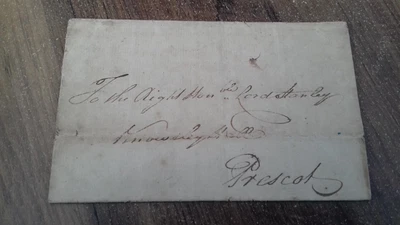 To the Right Honble Lord Stanley
Knowsley
Prescot